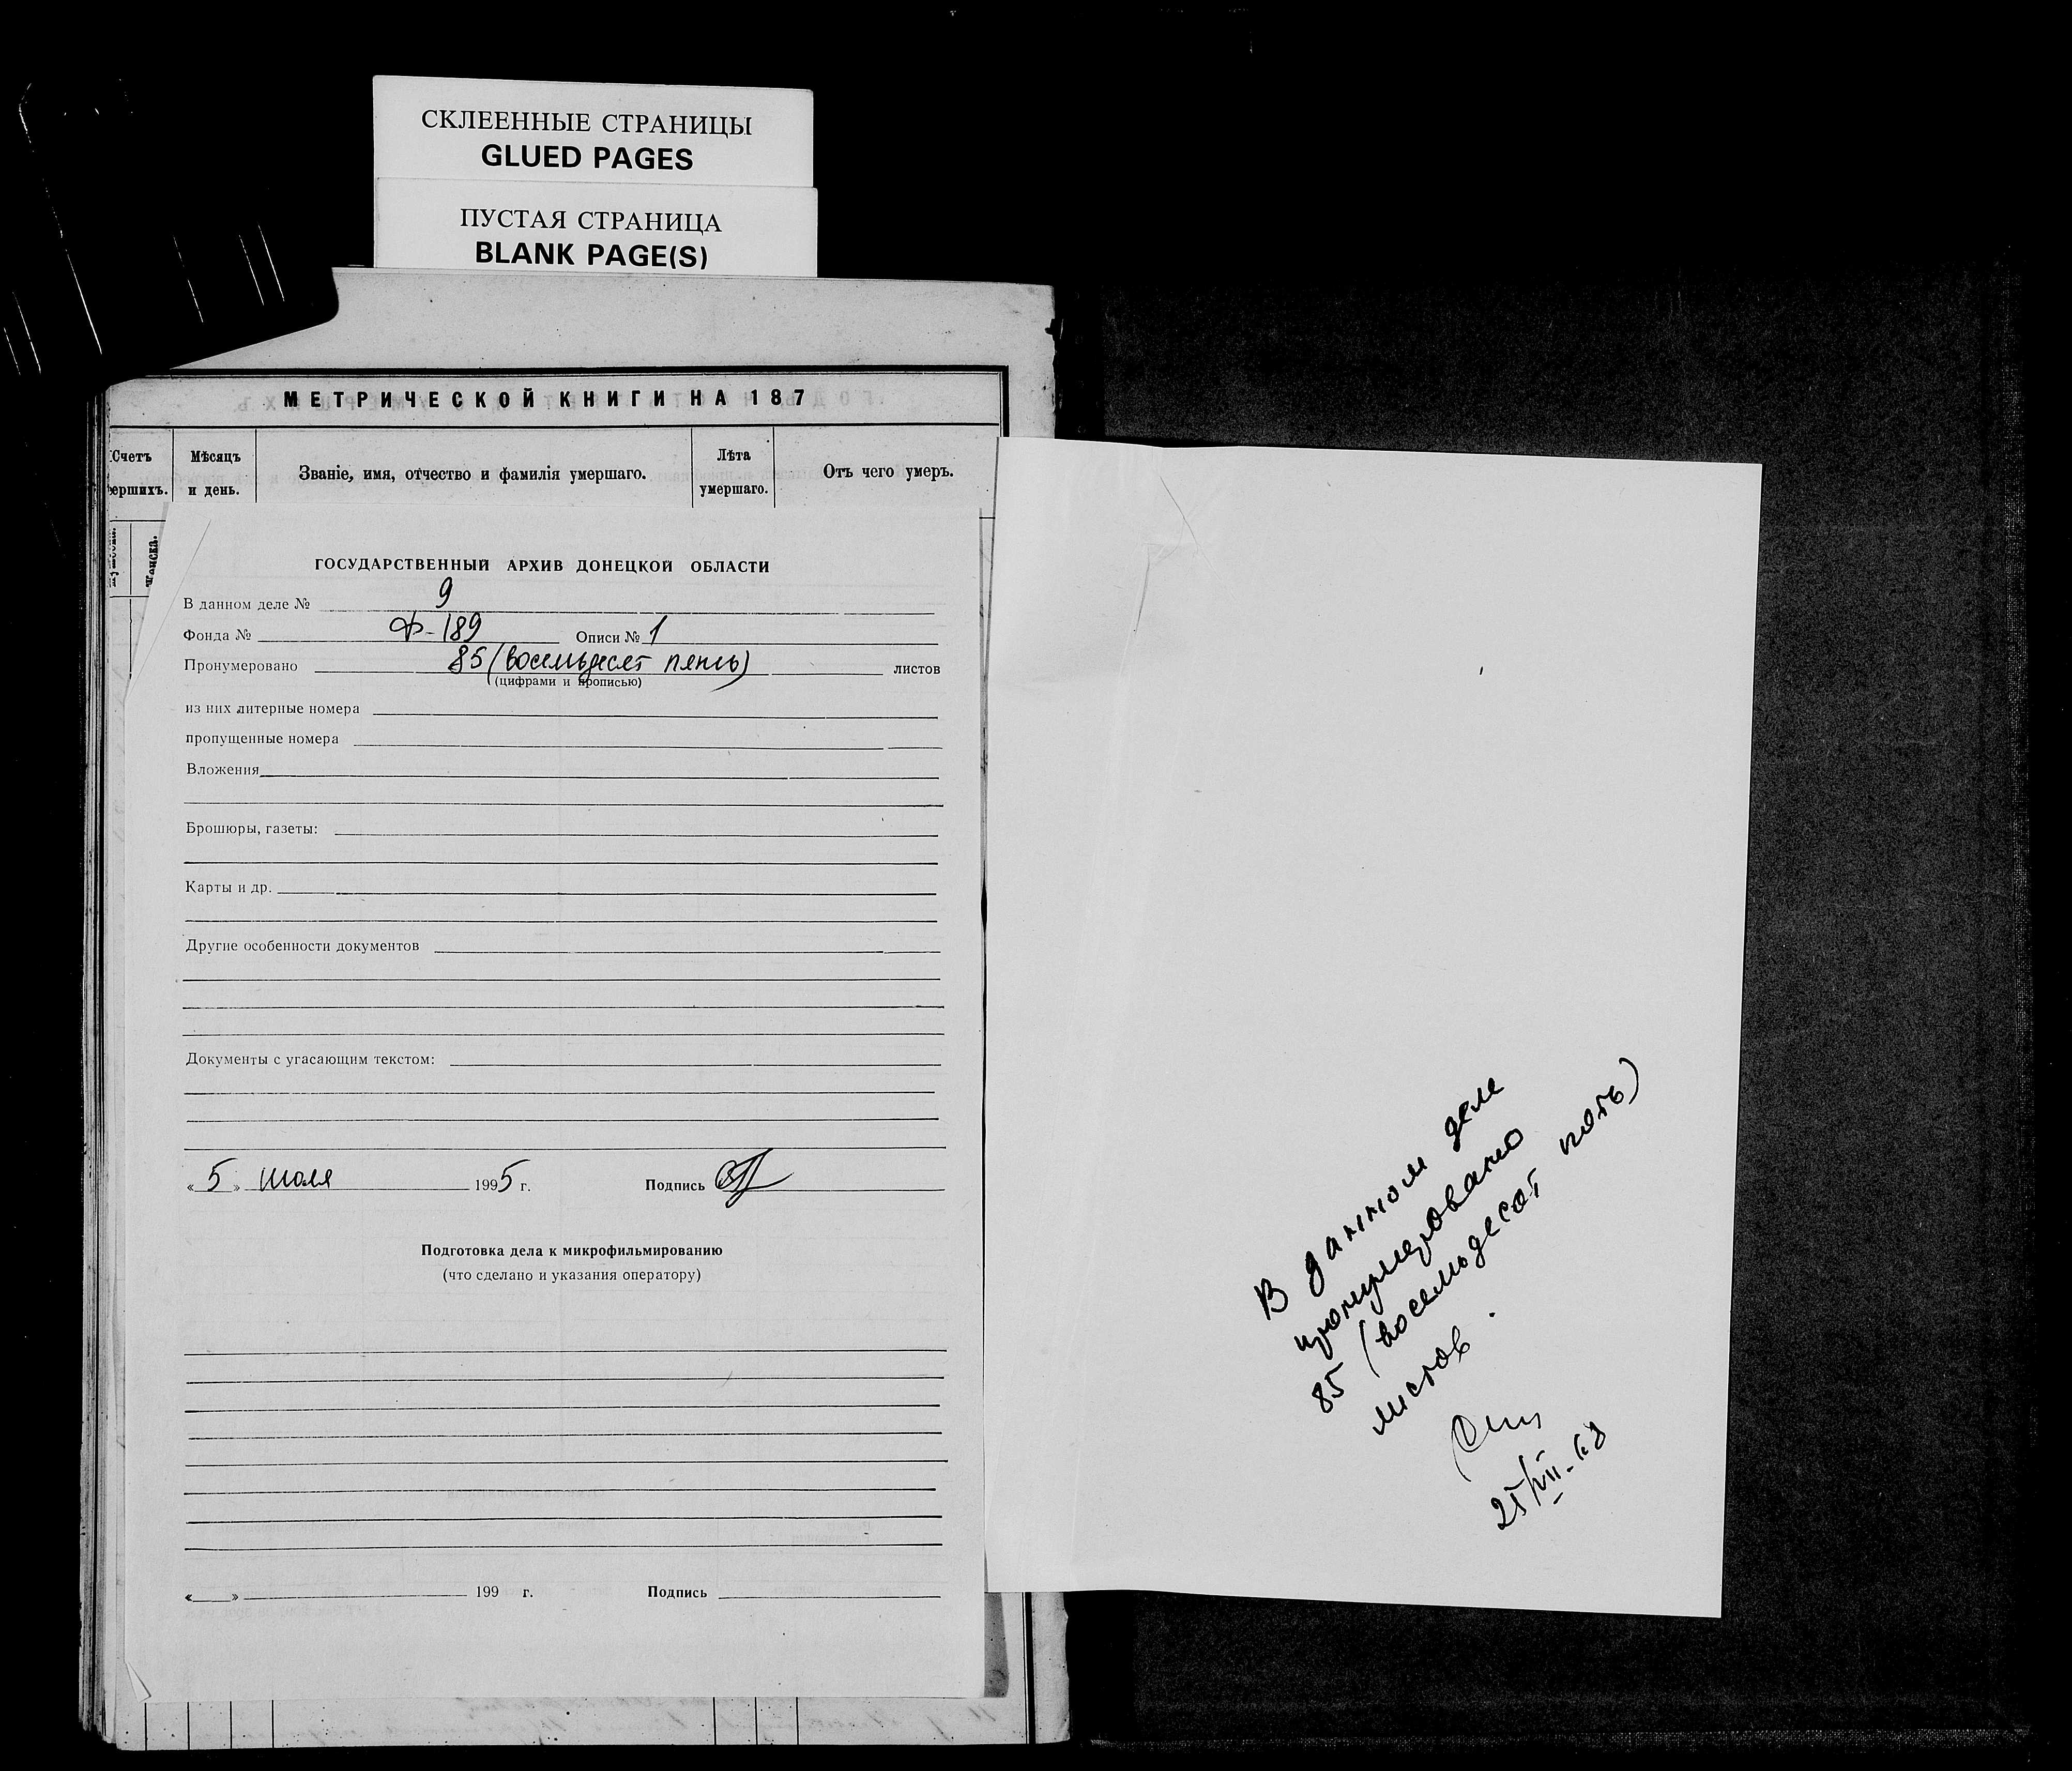 СКЛЕЕННЫЕ СТРАНИЦЫ
GLUED PAGES
ПУСТАЯ СТРАНИЦА
BLANK PAGE(S)
МЕТРИЧЕСКОЙ КНИГИ НА 187
Счетъ
Мѣсяцъ
и день.
Званіе, имя, отчество и фамилія умершаго.
Лѣта
умершаго.
Отъ чего умеръ.
ГОСУДАРСТВЕННЫЙ АРХИВ ДОНЕЦКОЙ ОБЛАСТИ
В данном деле № 9
Фонда № Ф-189 Описи № 1
Пронумеровано 85 (восемьдесят пять) листов
(цифрами и прописью)
из них литерные номера
пропущенные номера
Вложения
Брошюры, газеты:
Карты и др.
Другие особенности документов
Документы с угасающим текстом:
«5» июля 1995 г. Подпись
Подготовка дела к микрофильмированию
(что сделано и указания оператору)
« » 199 г. Подпись
В данном деле
пронумеровано
85 (восемьдесят пять)
листов.
25/VII-68